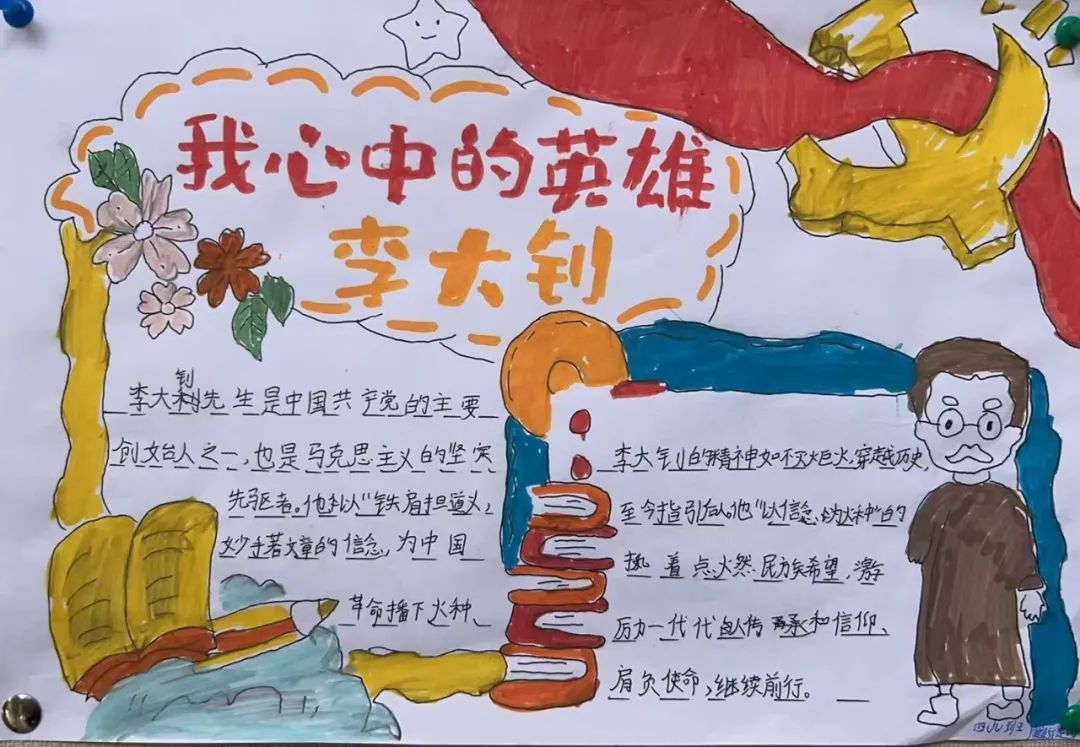 我心中的英雄
李大钊
李大钊先生是中国共产党的主要
创始人之一,也是马克思主义的坚实
先驱者。他以“铁肩担道义,
妙手著文章的信念,为中国
革命播下火种、
李大钊的精神如不灭火巨火,穿越历史,
至今指引后人他“以信念为火种”的
执着点燃民族希望,激
励一代代人传承和信仰、
肩负使命,继续前行。
四八班